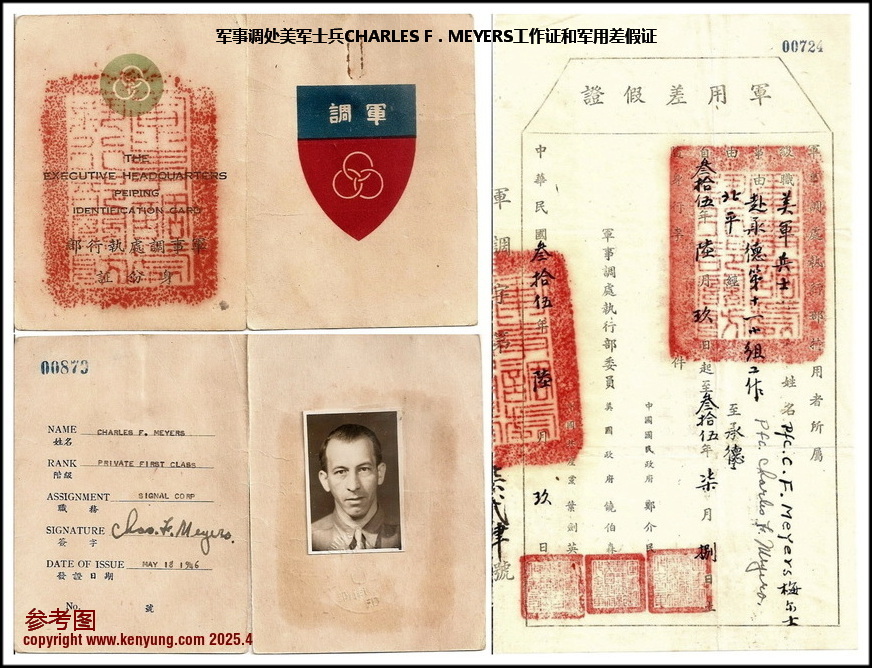 军事调处美军士兵CHARLES F . MEYERS工作证和军用差假证
THE
EXECUTIVE HEADQUARTERS
PEIPING
IDENTIFICATION CARD
部行執處調事軍
証份身
調軍
00870
NAME CHARLES F. MEYERS
姓名
RANK PRIVATE FIRST CLASS
階級
ASSIGNMENT SIGNAL CORP
職務
SIGNATURE Chas. F. Meyers.
簽字
DATE OF ISSUE MAY 18 1946
發證日期
No. 號
00724
證假差用軍
軍事調處執行部
用者所屬
級職 美軍兵士
姓名 Pfc. C. F. Meyers 梅尔士
Pfc. Charles F. Meyers.
事由 赴承德第十一小組工作
由 北平
至 承德
自 叁拾伍年陸月玖日起至叁拾伍年柒月捌日止
件
中國國民政府 鄭介民
軍事調處執行部委員 美國政府 饒伯森
葉劍英
中華民國叁拾伍年陸月玖日
軍調字第
號
参考图
copyright www.kenyung.com 2025.4